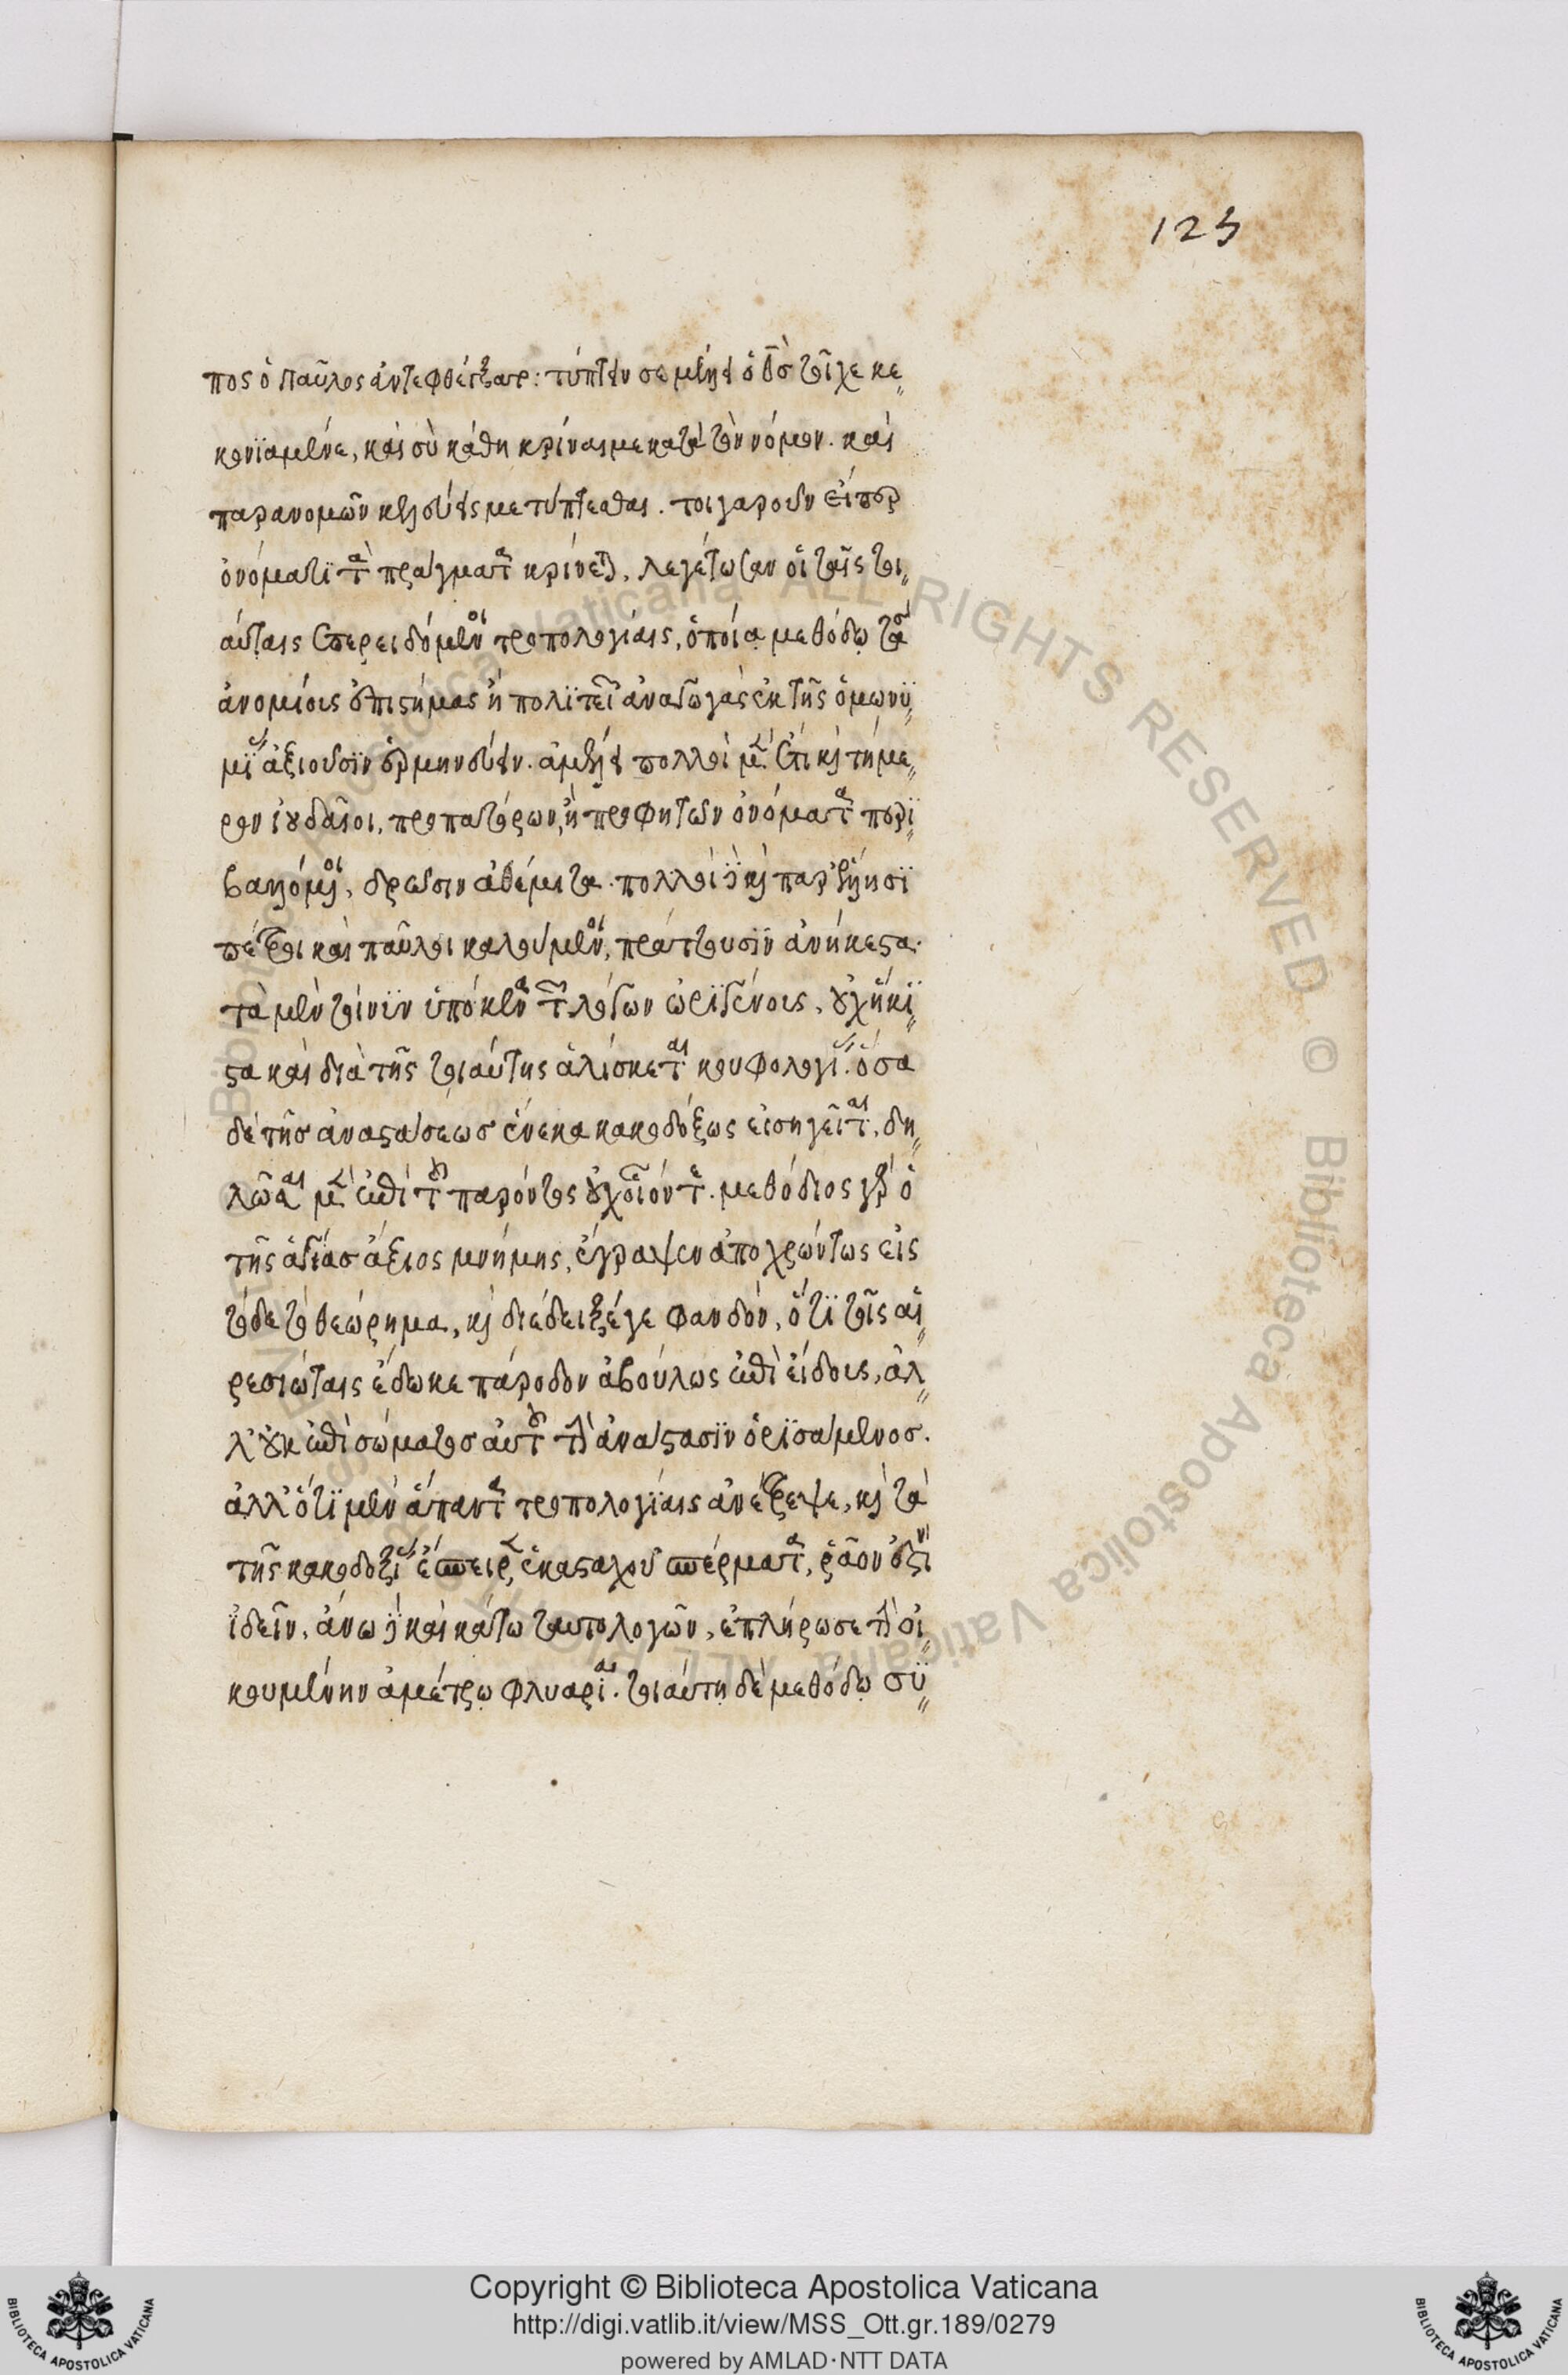 123
πος ὁ Παῦλος ἀντεφθέγξατο: τύπτειν σε μέλλει ὁ θσ τοῖχε κε„
κονϊαμένε, καὶ σὺ κάθη κρίναι με κατὰ τὸν νόμον. καὶ
παρανομῶν κελεύεις με τύπτεσθαι. τοιγαροῦν εἴπερ
ὀνόματϊ τὰ πράγματα κρίνεται, λεγέτωσαν οἱ ταῖς τοι„
αύταις ἐπερειδόμενοι τροπολογίαις, ὁποίᾳ μεθόδῳ τὰς
ἀνομοίους ἐπιστήμας ἢ πολϊτείας ἀναγωγὰς ἐκ τῆς ὁμωνϋ„
μϊας ἀξιοῦσϊν ἑρμηνεύειν. ἀμέλει πολλοὶ μὲν ἔτι καὶ τήμε„
ρον ἰουδαῖοι, προπατόρων, ἢ προφητῶν ὀνόματα περϊ„
βαλλόμενοι, δρῶσιν ἀθέμιτα. πολλοὶ δὲ καὶ παρ' ἕλλησϊ
πέτροι καὶ παῦλοι καλούμενοι, πράττουσϊν ἀνήκεστα.
τὰ μὲν τοίνϋν ὑπόκενα τῶν λόγων ὠρϊγένους, οὐχ ἥκϊ„
στα καὶ διὰ τῆς τοιαύτης ἁλίσκεται κουφολογίας. ὅσα
δὲ τῆσ ἀναστάσεωσ ἕνεκα κακοδόξως εἰσηγεῖται, δη„
λῶσαι μὲν ἐπὶ τοῦ παρόντος οὐχ οἷόν τε. μεθόδιος γὰρ ὁ
τῆς ἁγίασ ἄξιος μνήμης, ἔγραψεν ἀποχρώντως εἰς
τόδε τὸ θεώρημα, καὶ διέδειξέ γε φανδόν, ὅτϊ τοῖς αἱ„
ρεσιώταις ἔδωκε πάροδον ἀβούλως ἐπὶ εἴδους, ἀλ„
λ' οὐκ ἐπὶ σώματοσ αὐτοῦ τὴν ἀνάστασϊν ὁρϊσάμενοσ.
ἀλλ' ὅτϊ μὲν ἅπαντα τροπολογϊαις ἀνέτρεψε, καὶ τὰ
τῆς κακοδοξίας ἔσπειρεν ἑκασταχοῦ σπέρματα, ῥᾷον ἐστὶν
ἰδεῖν. ἄνω δὲ καὶ κάτω ταυτολογῶν, ἐπλήρωσε τὴν οἰ„
κουμένην ἀμέτρῳ φλυαρίας. τοιαύτῃ δὲ μεθόδῳ σϋ„
Copyright © Biblioteca Apostolica Vaticana
http://digi.vatlib.it/view/MSS_Ott.gr.189/0279
powered by AMLAD·NTT DATA